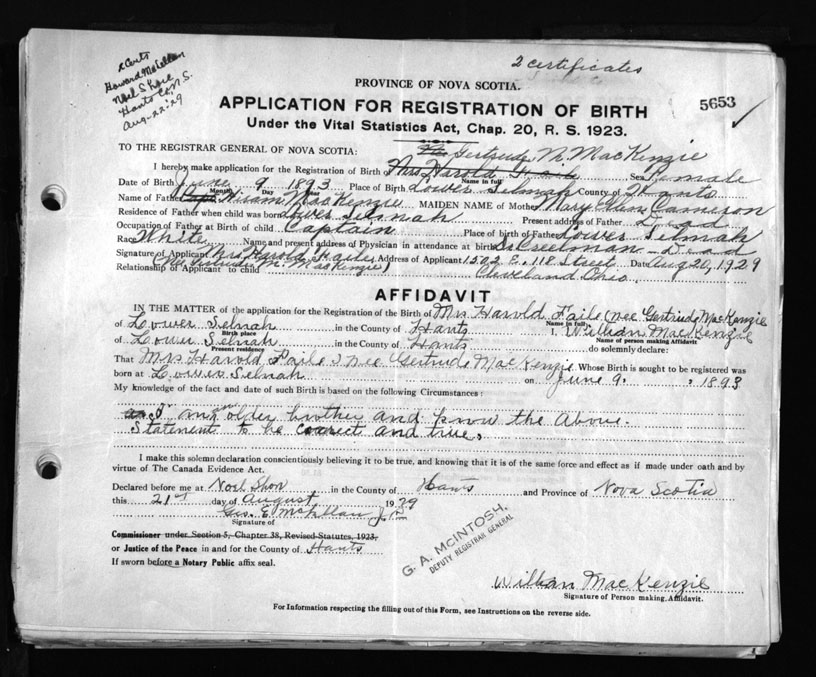 2 certificates
2 Certs
Howard McLellan
Noel Shore
Hants Co, N.S.
Aug-22-29
PROVINCE OF NOVA SCOTIA.
5653
APPLICATION FOR REGISTRATION OF BIRTH
Under the Vital Statistics Act, Chap. 20, R. S. 1923.
TO THE REGISTRAR GENERAL OF NOVA SCOTIA: Gertrude M. MacKenzie
I hereby make application for the Registration of Birth of Mrs Harold Name in full Sex Female
Date of Birth June 9 1893 Place of Birth Lower Selmah County of Hants
Month Day Year
Name of Father Capt Hiram MacKenzie MAIDEN NAME of Mother Mary Cameron
Residence of Father when child was born Lower Selmah Present address of Father Dead
Occupation of Father at Birth of child Captain Place of birth of Father Lower Selmah
Race White Name and present address of Physician in attendance at birth Dr Creelman - Dead
Signature of Applicant Mrs Harold Address of Applicant 1502 E. 118 Street Date Aug 20, 1929
Relationship of Applicant to child (Née Gertrude M. MacKenzie) Cleveland Ohio.
AFFIDAVIT
IN THE MATTER of the application for the Registration of the Birth of Mrs Harold Faile (nee Gertrude MacKenzie
Name in full
of Lower Selmah in the County of Hants I, William MacKenzie
Birth place Name of person making Affidavit.
of Lower Selmah in the County of Hants do solemnly declare:
Present residence
That Mrs Harold Faile nee Gertrude MacKenzie Whose Birth is sought to be registered was
born at Lower Selmah on June 9, , 1893
My knowledge of the fact and date of such Birth is based on the following Circumstances:
I am an older brother and know the above
Statement to be correct and true.
I make this solemn declaration conscientiously believing it to be true, and knowing that it is of the same force and effect as if made under oath and by
virtue of The Canada Evidence Act.
Declared before me at Noel Shore in the County of Hants and Province of Nova Scotia
this 21st day of August 1929
Geo. E McLellan J P
Signature of
Commissioner under Section 5, Chapter 38, Revised Statutes, 1923,
or Justice of the Peace in and for the County of Hants
If sworn before a Notary Public affix seal.
G. A. MCINTOSH,
DEPUTY REGISTRAR GENERAL
William MacKenzie
Signature of Person making Affidavit.
For Information respecting the filling out of this Form, see Instructions on the reverse side.